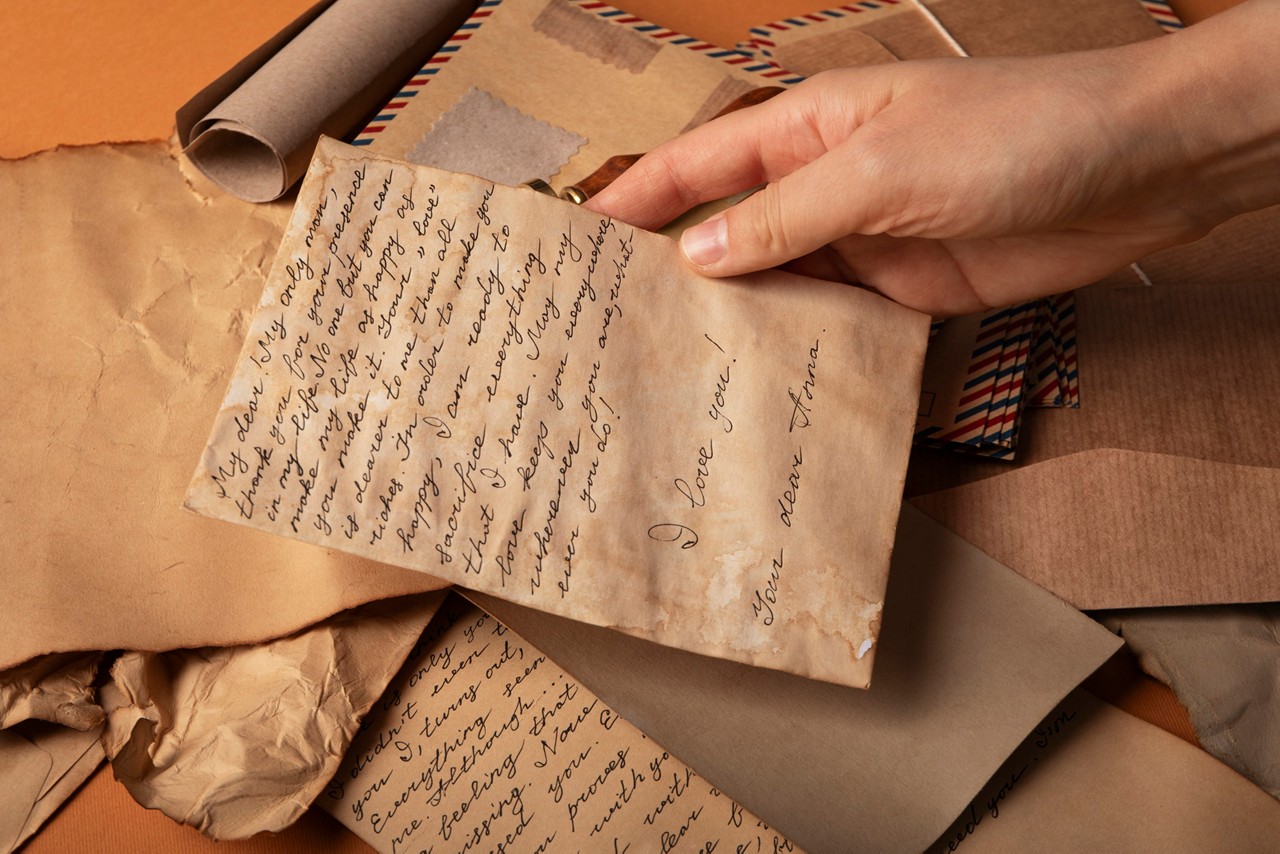 My dear! My only man,
thank you for your presence
in my life. No one but you can
make my life as happy as
you make it. Your „love”
is dearer to me than all
riches. In order to make you
happy, I am ready to
sacrifice everything
that I have. May my
love keep you everywhere,
wherever you are, what-
ever you do!
I love you!
Your dear Anna.
is only you
I didn't even t
you I, turns out,
Everything seen
me. Although...
a feeling that
missing. None
you. E
you proves
with yo
with
dear
eed you. Ism